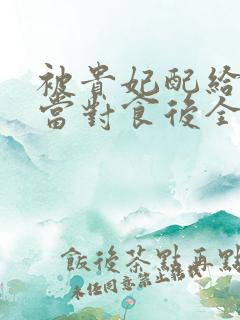 被貴妃配給
當對食後全
飯後茶點再點
未任同意禁止轉載